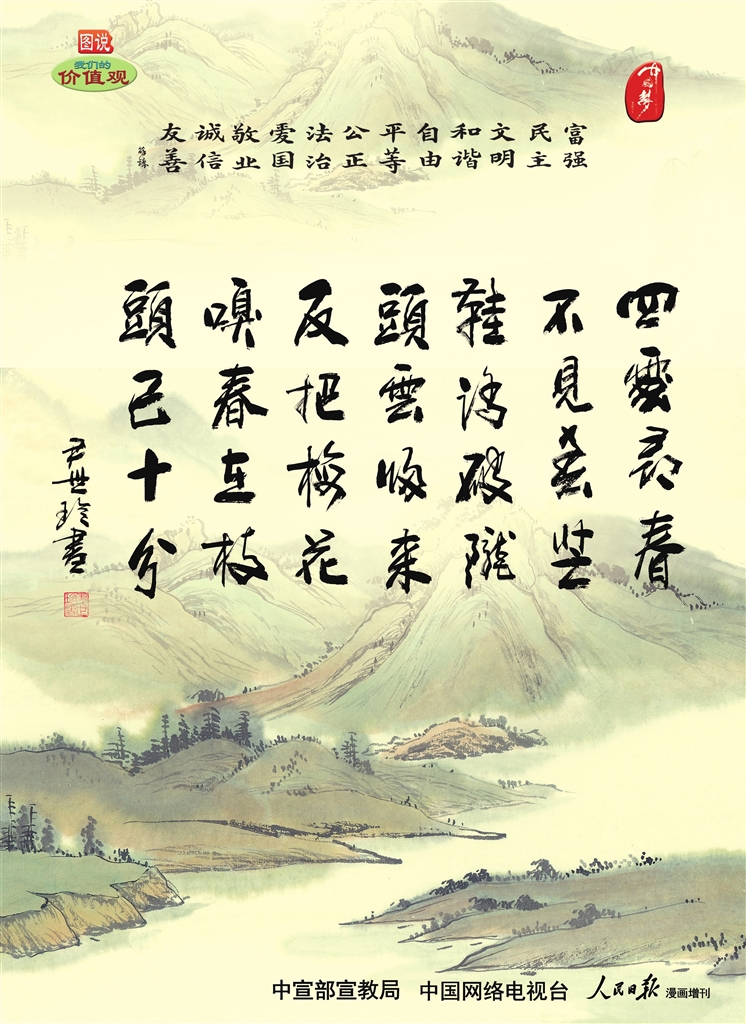 图说
我们的
价值观
中国梦
富强
民主
文明
和谐
自由
平等
公正
法治
愛国
敬业
诚信
友善
四處尋春
不見春芒
鞋踏破隴
頭雲歸来
反把梅花
嗅春在枝
頭已十分
尹世玲書
中宣部宣教局 中国网络电视台 人民日报 漫画增刊